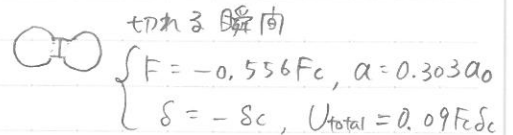 切れる瞬間
F = -0.556Fc, a = 0.303a₀
δ = -δc, Utotal = 0.09Fcδc